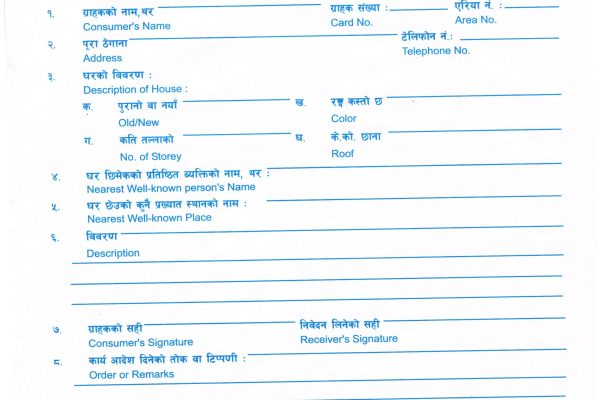 १. ग्राहकको नाम,थर ग्राहक संख्या : एरिया नं. :
Consumer's Name Card No. Area No.
२. पूरा ठेगाना टेलिफोन नं.:
Address Telephone No.
३. घरको विवरण :
Description of House :
क. पुरानो वा नयाँ ख. रङ्ग कस्तो छ
Old/New Color
ग. कति तल्लाको घ. के.को. छाना
No. of Storey Roof
४. घर छिमेकको प्रतिष्ठित ब्यक्तिको नाम, थर :
Nearest Well-known person's Name
५. घर छेउको कुनै प्रख्यात स्थानको नाम :
Nearest Well-known Place
६. विवरण
Description
७. ग्राहकको सही निवेदन लिनेको सही
Consumer's Signature Receiver's Signature
८. कार्य आदेश दिनेको तोक वा टिप्पणी :
Order or Remarks